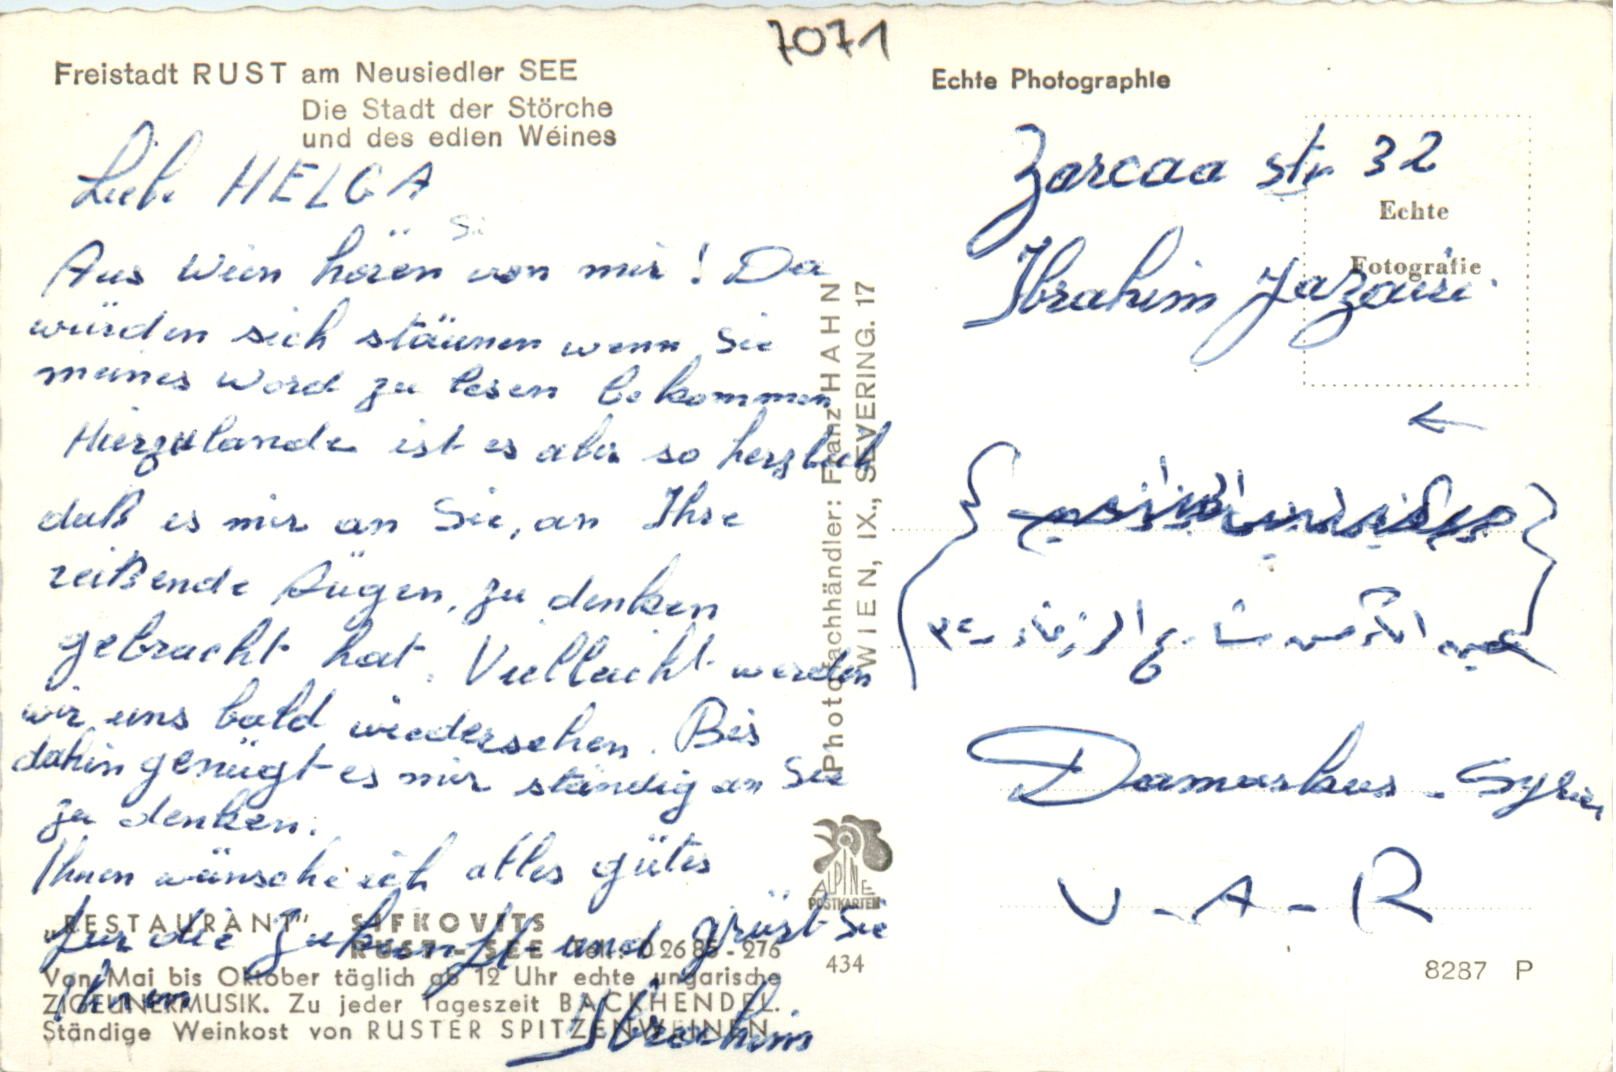 7071
Freistadt RUST am Neusiedler SEE
Die Stadt der Störche
und des edlen Weines
Liebe HELGA
Sie
Aus Wien hören von mir! Da
würden sich stäunen wenn Sie
meines Word zu lesen bekommen
Hierzulande ist es aber so herzlich
daß es mir an Sie, an Ihre
reißende Äügen, zu denken
gebracht hat. Viellaicht werden
wir uns bald wiedersehen. Bis
dahin genügt es mir ständig an Sie
zu denken.
Ihnen wünsche ich alles gütes
für die Zukunft und grüst Sie
Ihnen
Ibrahim
„RESTAURANT" SIFKOVITS
RUST-SEE Tel.: 0 26 85 - 276
Von Mai bis Oktober täglich ab 12 Uhr echte ungarische
ZIGEUNERMUSIK. Zu jeder Tageszeit BACKHENDEL.
Ständige Weinkost von RUSTER SPITZENWEINEN.
Photofachhändler: Franz HAHN
WIEN, IX., SEVERING. 17
ALPINE
POSTKARTEN
434
Echte Photographie
Zarcaa str 32
Echte
Fotografie
Ibrahim Jazairi
Damaskus - Syrien
U - A - R
8287 P